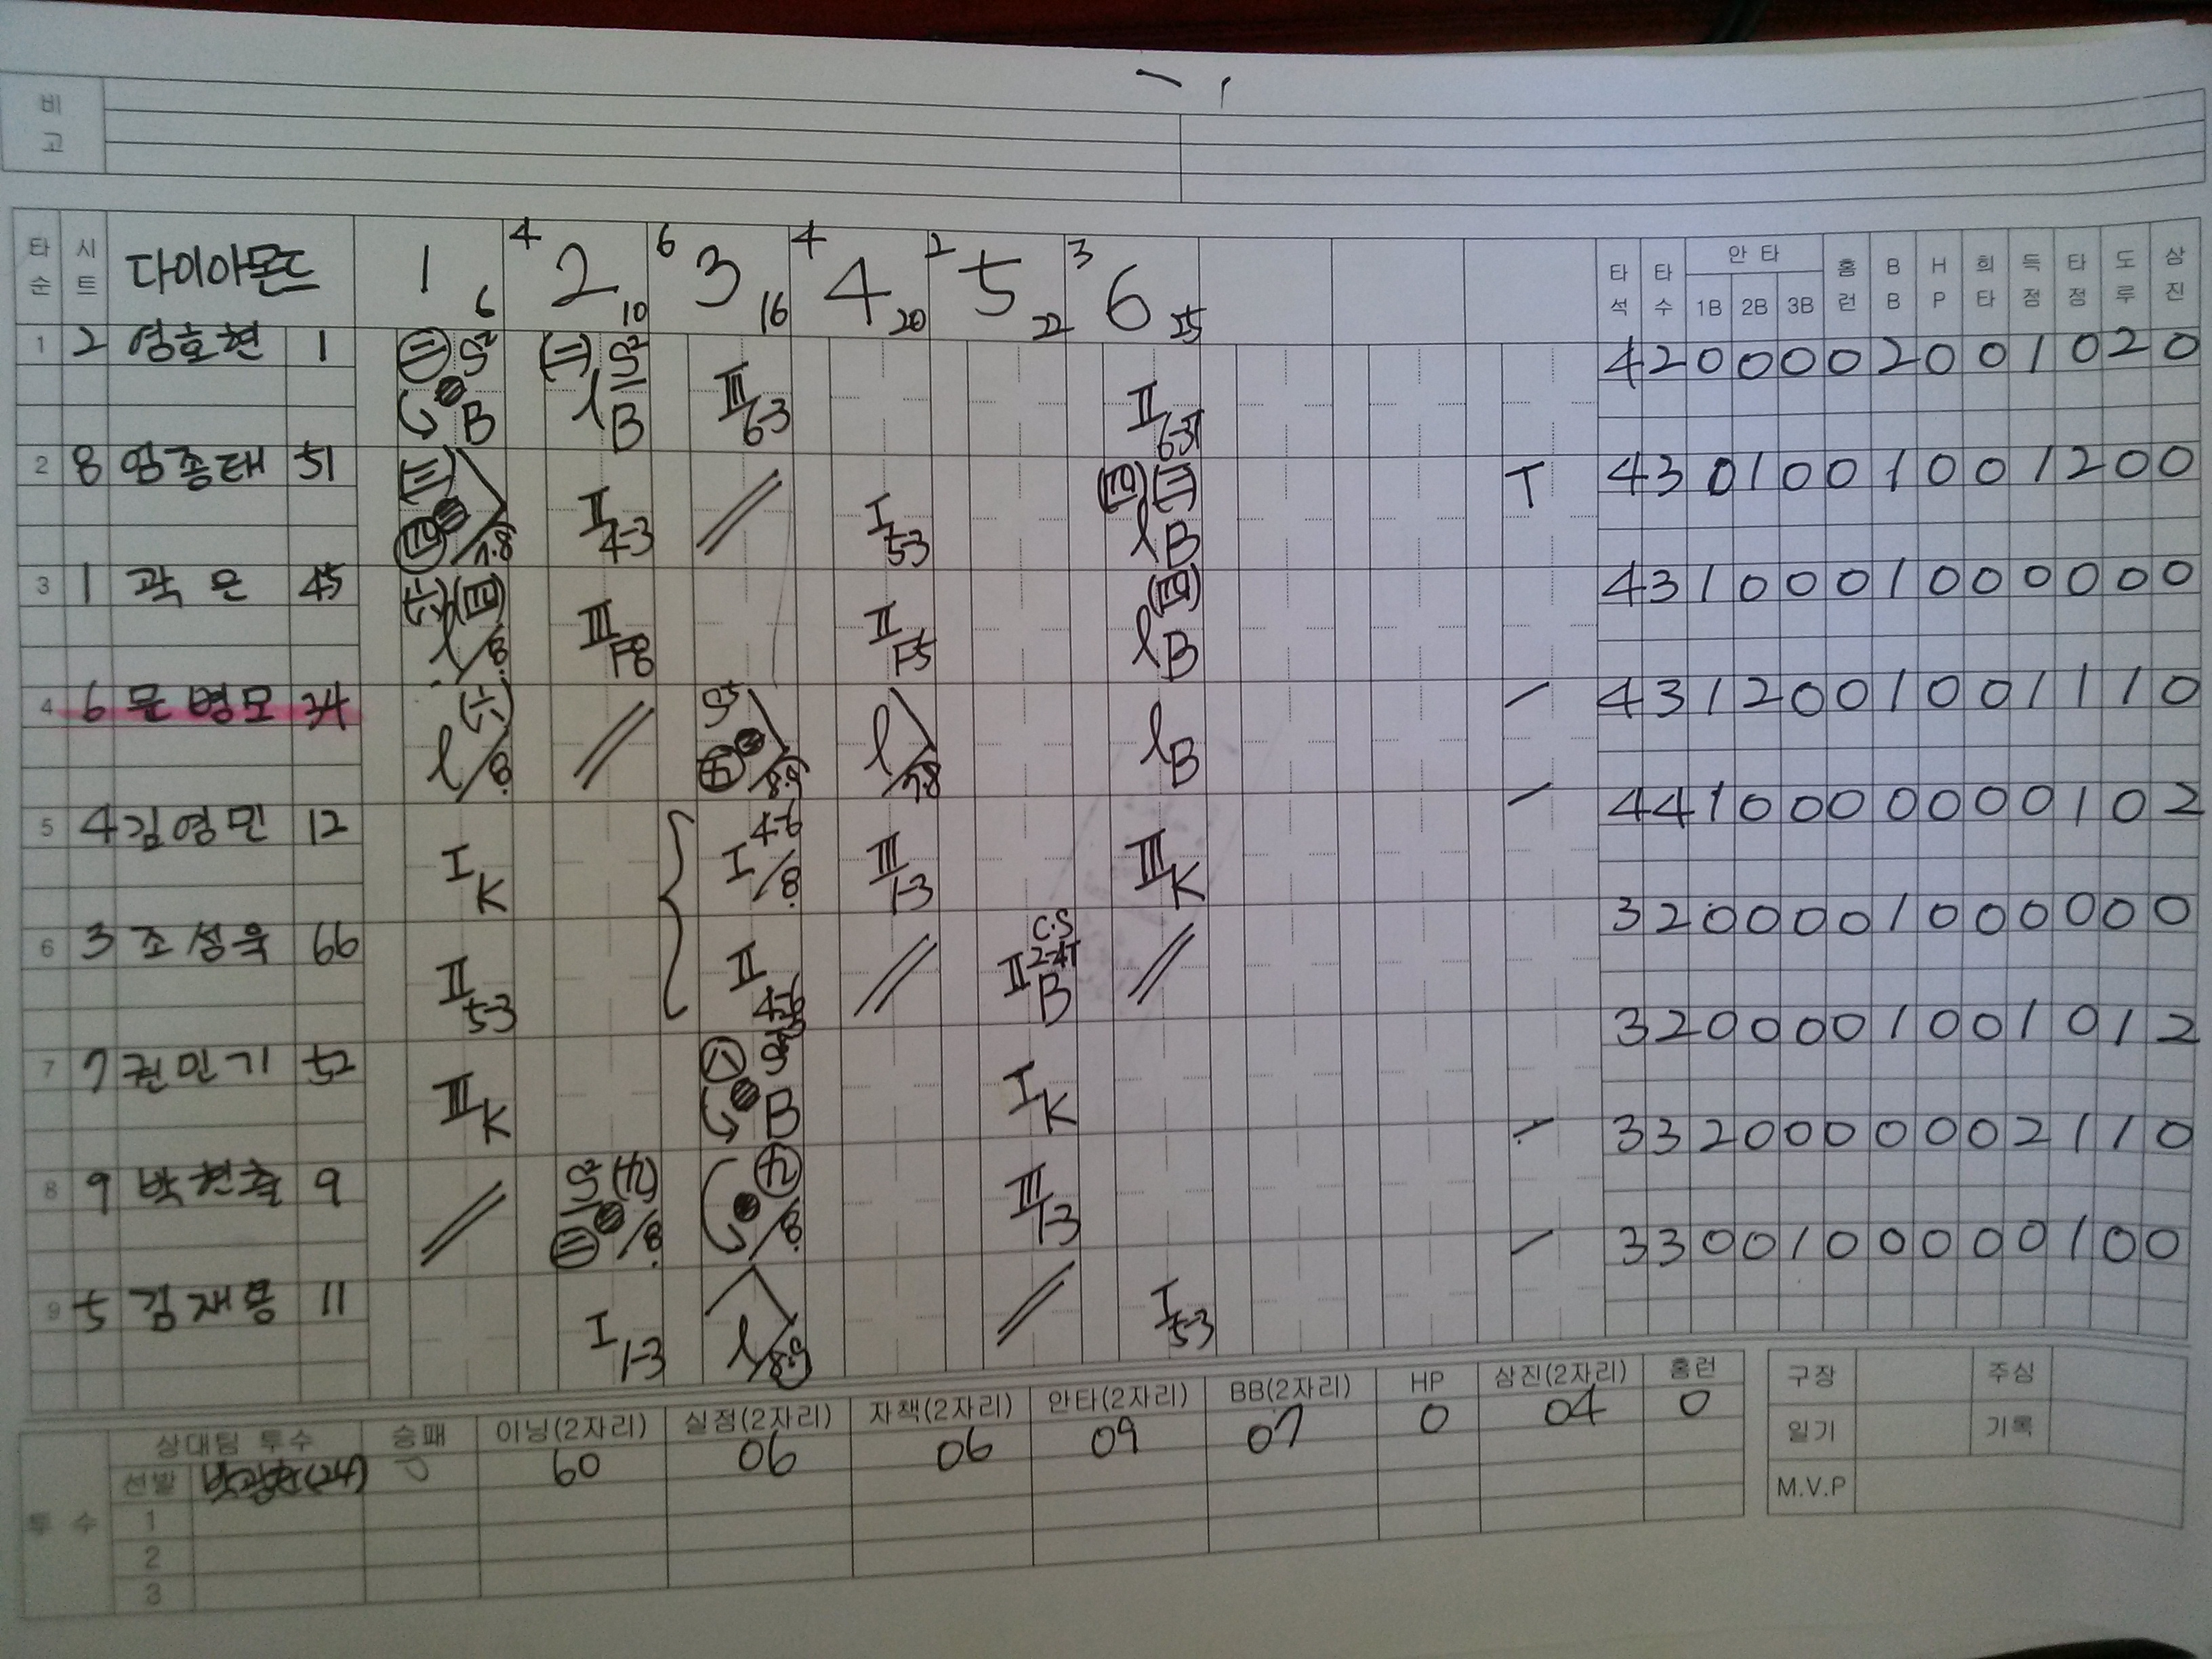 비고
타순 시트 다이아몬드 1 6 4 2 10 6 3 16 4 4 20 2 5 22 3 6 25 타석 타수 안타 1B 2B 3B 홈런 BB HP 희타 득점 타점 도루 삼진
1 2 엄호현 1 B B III 6-3 II 6-3T 4 2 0 0 0 0 2 0 0 1 0 2 0
2 8 엄종태 51 7.8 II 4-3 I 5-3 B T 4 3 0 1 0 0 1 0 0 1 2 0 0
3 1 곽은 45 8. III F8 II F5 B 4 3 1 0 0 0 1 0 0 0 0 0 0
4 6 문병모 34 8. 8.9 7.8 B 4 3 1 2 0 0 1 0 0 1 1 1 0
5 4 김영민 12 I K I 4-6 8. III 1-3 III K 4 4 1 0 0 0 0 0 0 0 1 0 2
6 3 조성욱 66 II 5-3 II 4-6 C.S II 2-4T B 3 2 0 0 0 0 1 0 0 0 0 0 0
7 7 권민기 52 III K B I K 3 2 0 0 0 0 1 0 0 1 0 1 2
8 9 9 8. 8. III 1-3 3 3 2 0 0 0 0 0 0 2 1 1 0
9 5 김재용 11 I 1-3 8.9 I 5-3 3 3 0 0 1 0 0 0 0 0 1 0 0
투수 상대팀 투수 승패 이닝(2자리) 실점(2자리) 자책(2자리) 안타(2자리) BB(2자리) HP 삼진(2자리) 홈런
선발 60 06 06 09 07 0 04 0
1
2
3
구장 주심
일기 기록
M.V.P